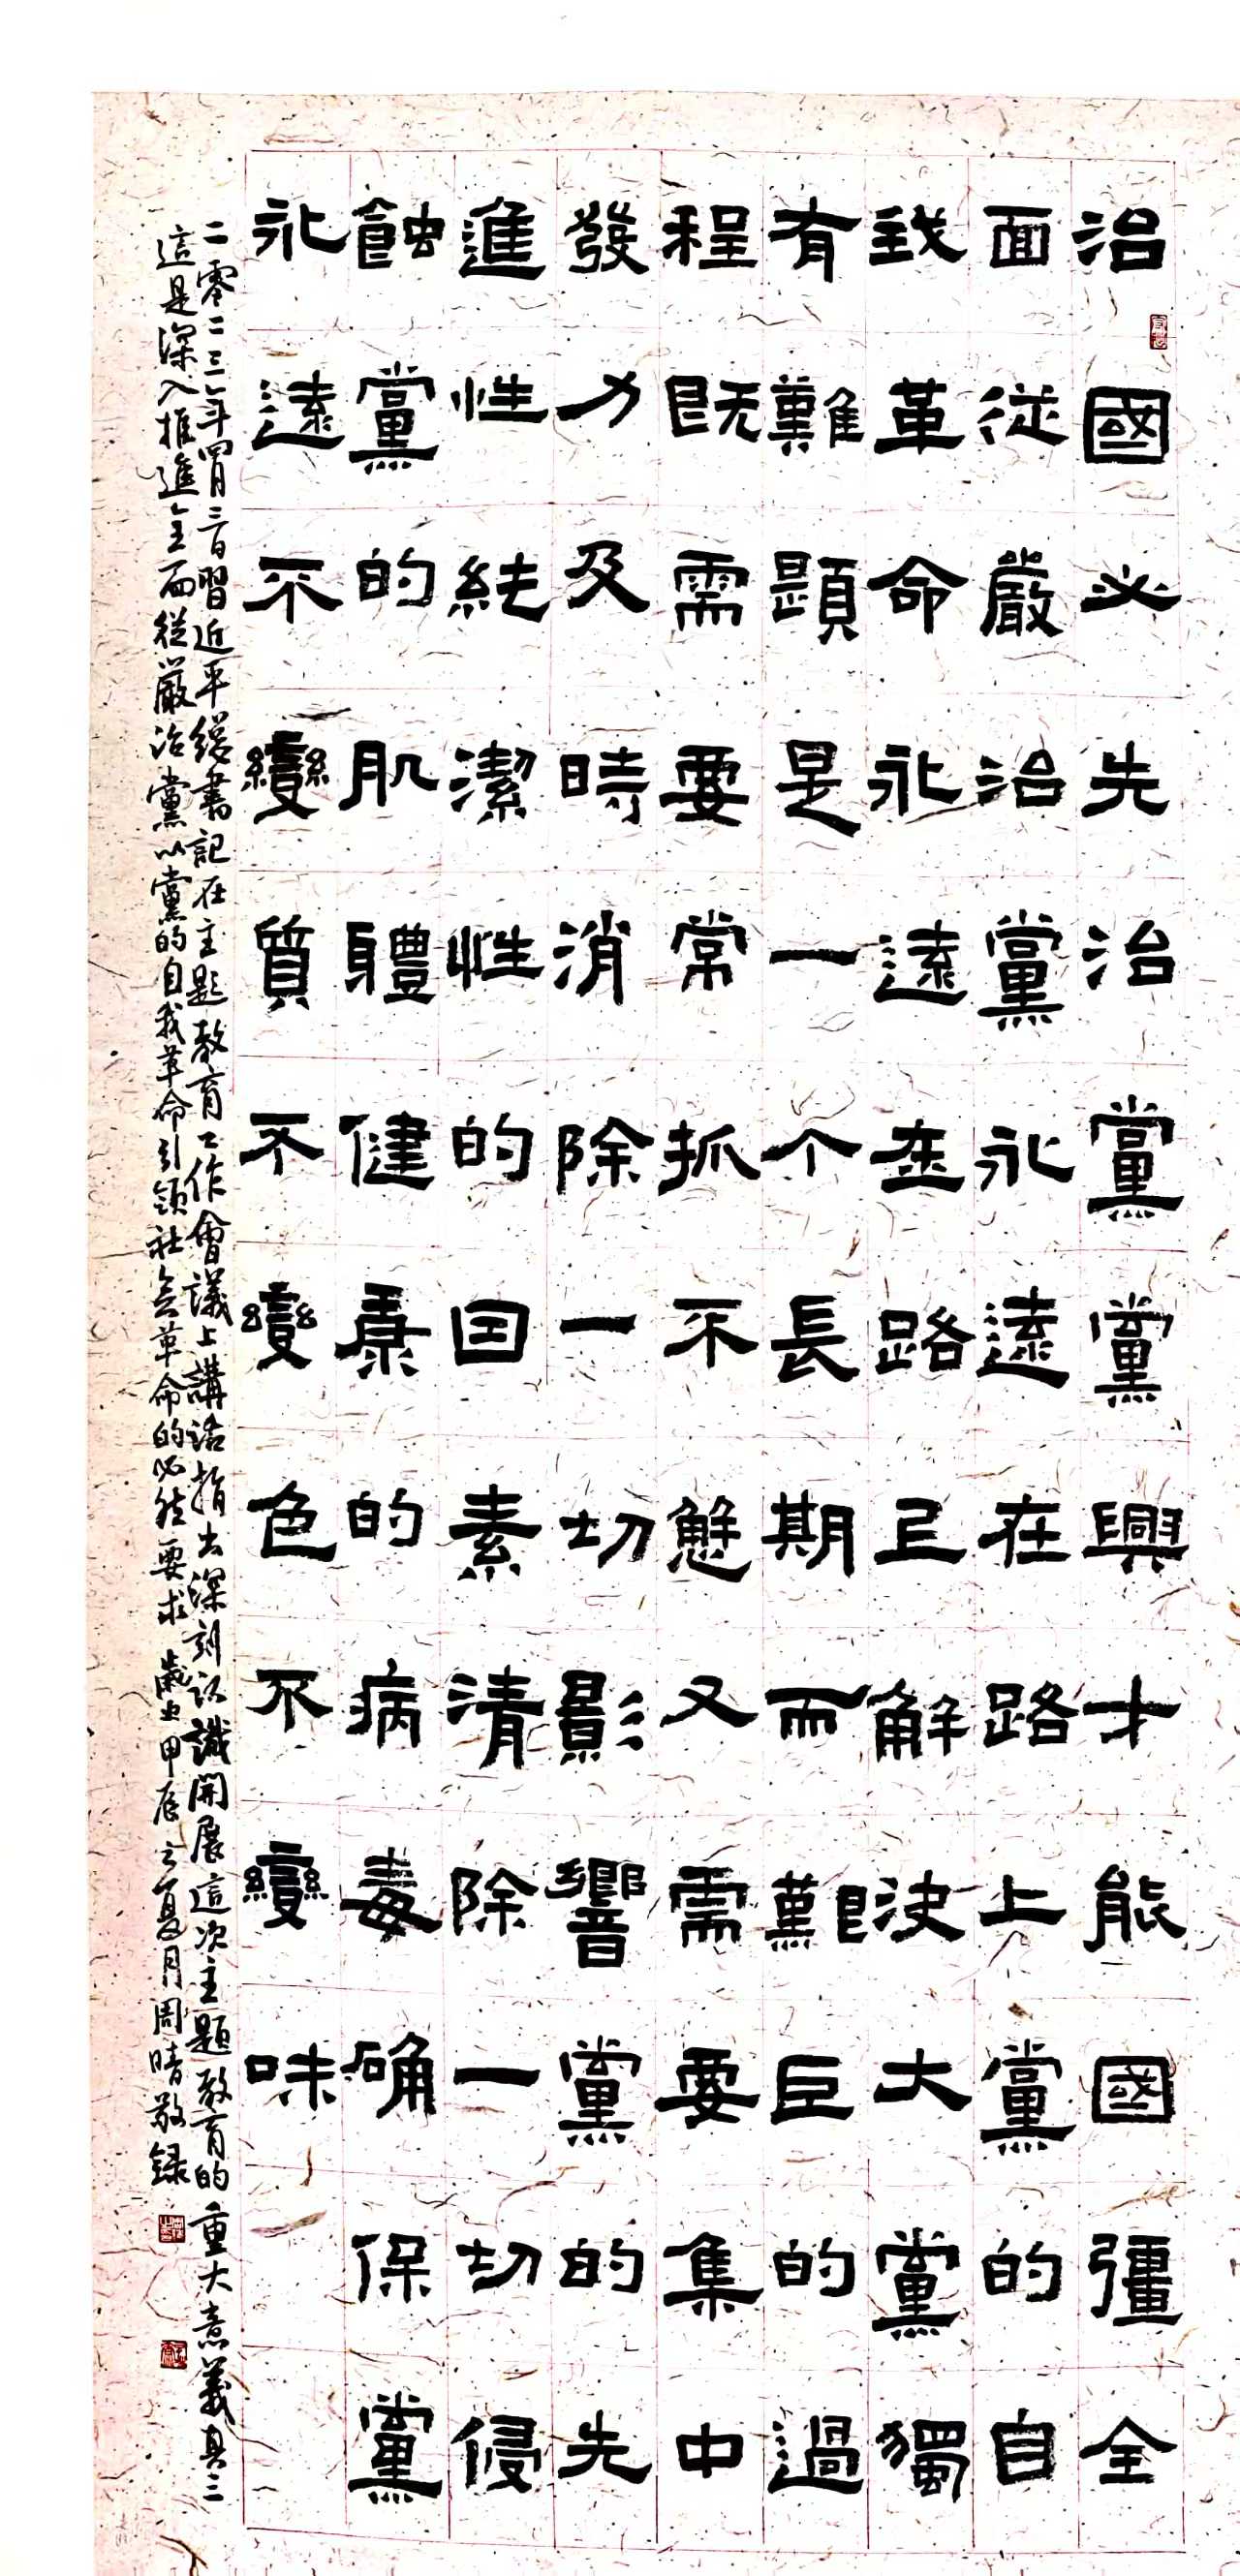 治國必先治黨黨興才能國彊全
面從嚴治黨永遠在路上黨的自
我革命永遠在路上解決大黨獨
有難題是一个長期而艱巨的過
程既需要常抓不懈又需要集中
發力及時消除一切影響黨的先
進性純潔性的因素清除一切侵
蝕黨的肌體健康的病毒确保黨
永遠不變質不變色不變味
二零二三年四月三日習近平總書記在主題教育工作會議上講話指出深刻認識開展這次主題教育的重大意義其三
這是深入推進全面從嚴治黨以黨的自我革命引領社會革命的必然要求 歲由甲辰之夏月周晴敬録